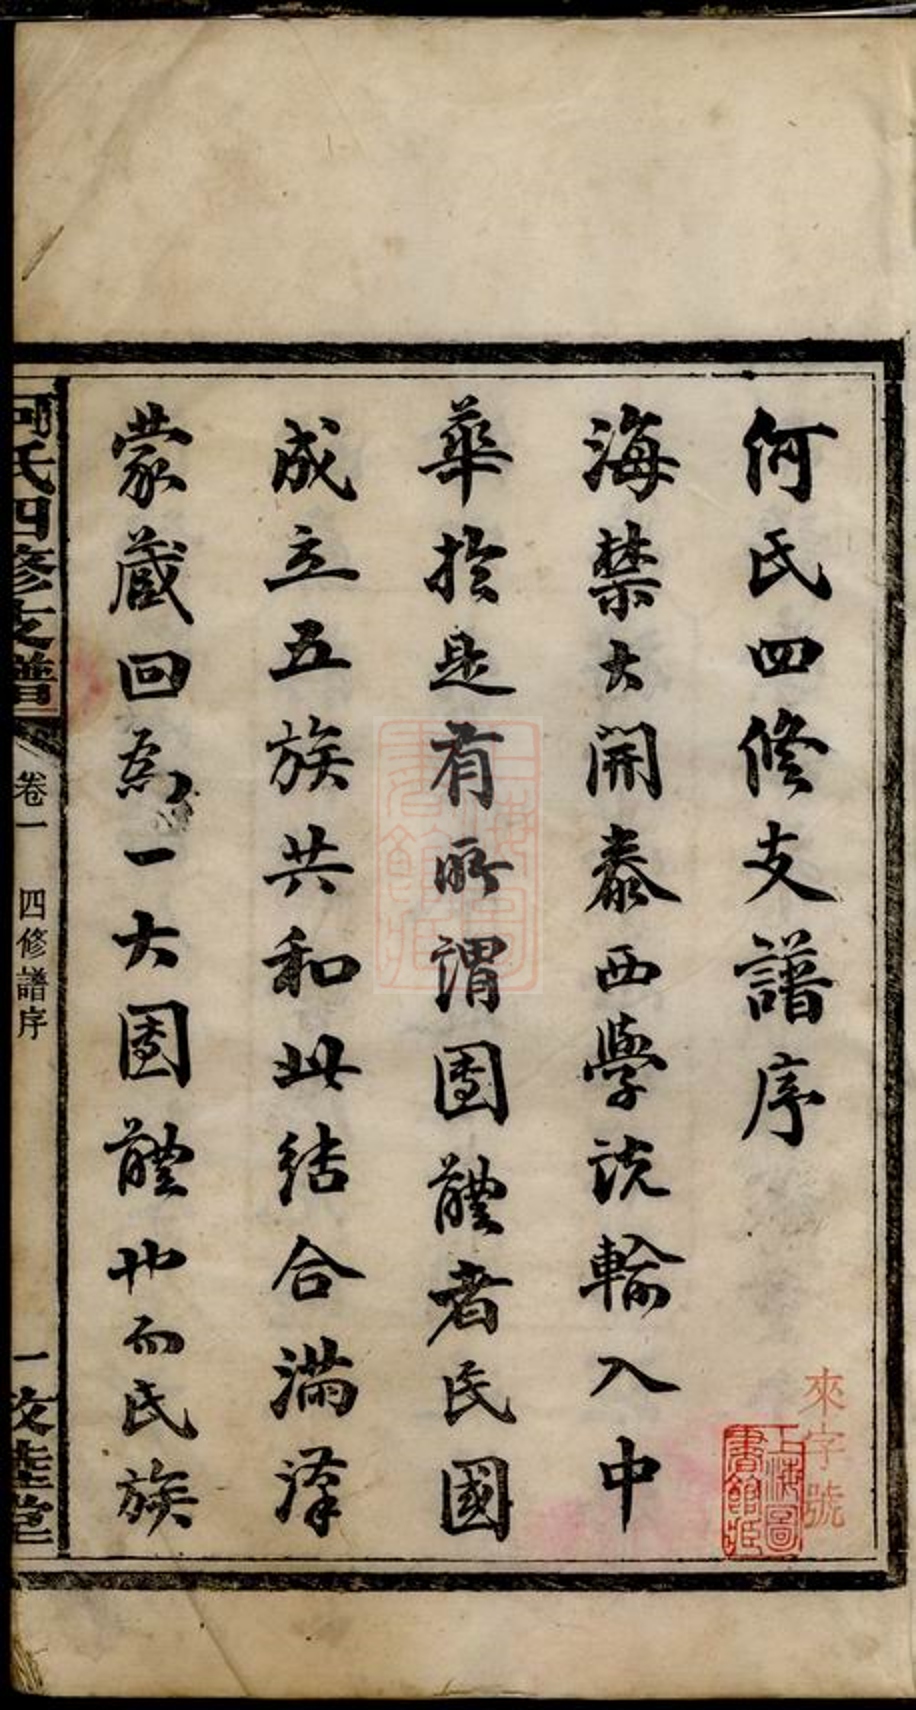 何氏四修支譜序
海禁大開泰西學說輸入中
華於是有所謂團體者民國
成立五族共和此結合滿漢
蒙藏回為一大團體也而民族
何氏四修支譜
卷一
四修譜序
一
來字號
上海圖書館藏
上海圖書館藏